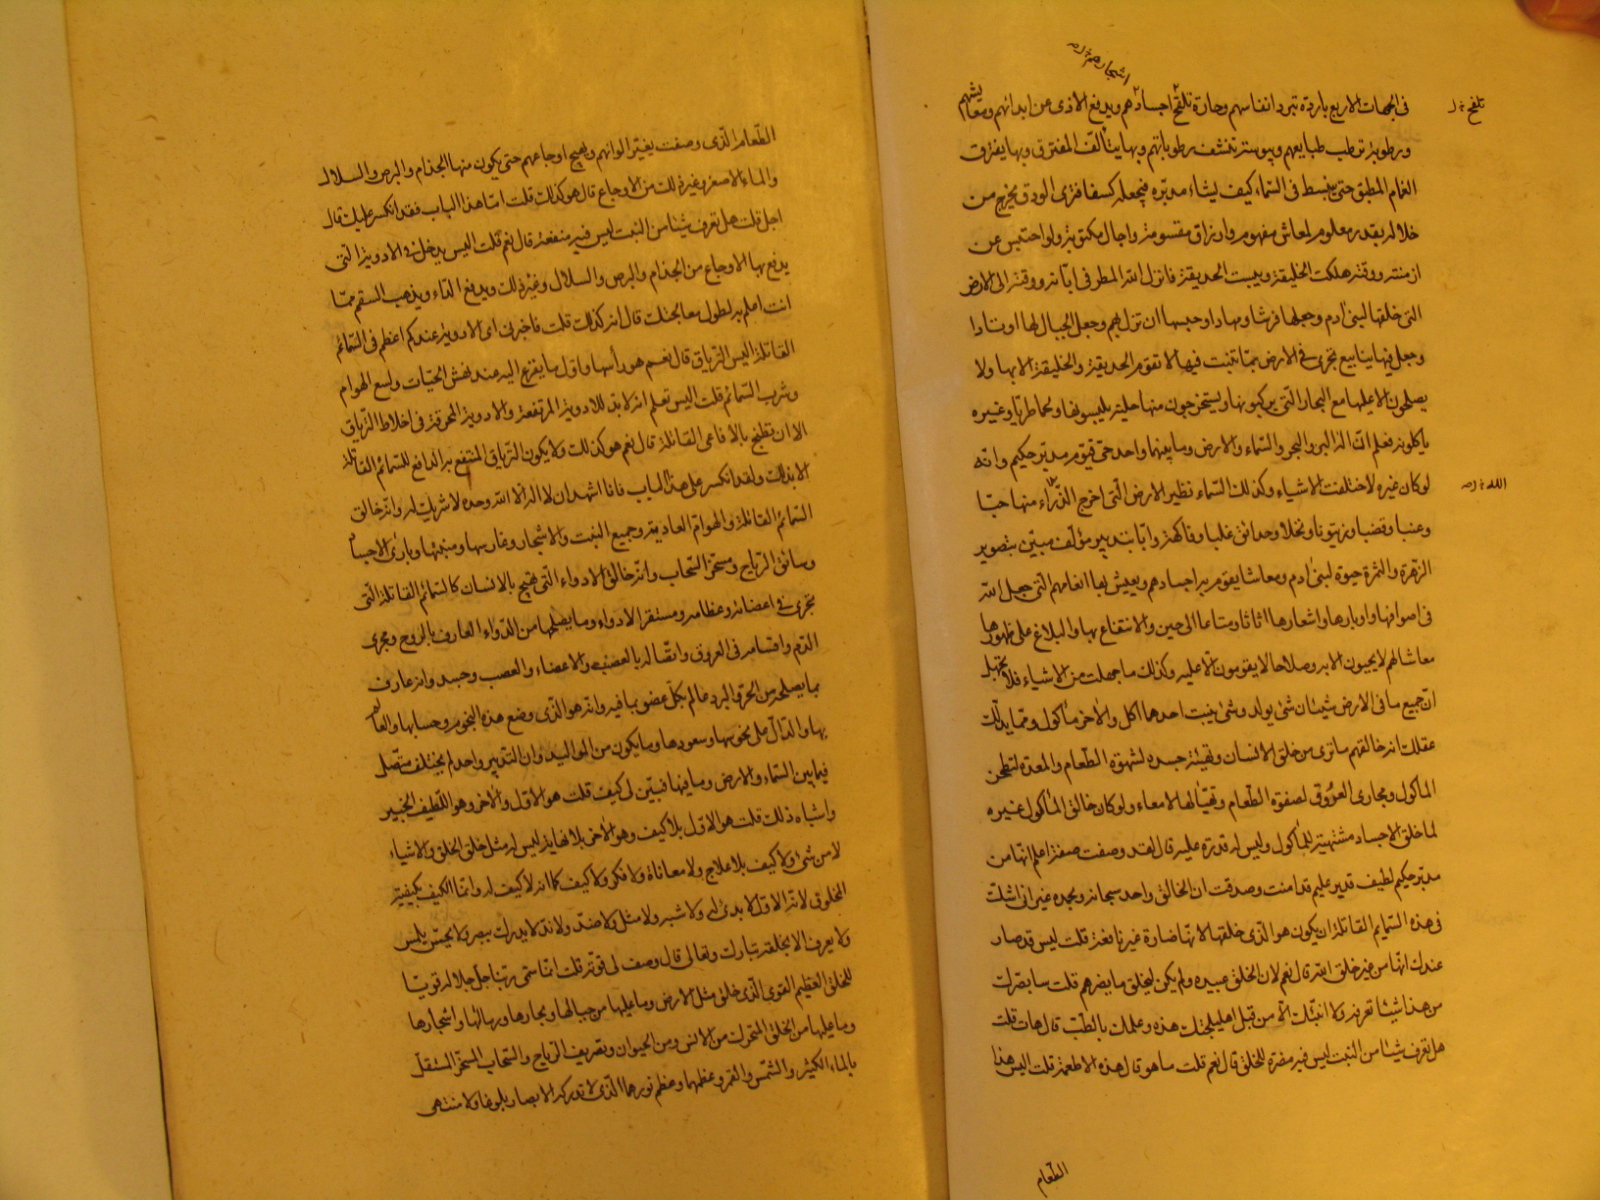 اشجارهم خ ل
تلقح خ ل
فى الجهات الاربع باردة تبرد انفاسهم وحارة تلقح اجسادهم ويدفع الاذى عن ابدانهم ومعايشهم
ورطوبة ترطب طبايعهم ويبوسة تنشف رطوباتهم وبها يتألف المفترق وبها يفترق
الغمام المطبق حتى ينبسط فى السماء كيف يشاء مدبره فيجعله كسفا فترى الودق يخرج من
خلاله بقدر معلوم لمعاش مفهوم وارزاق مقسومة واجال مكتوبة ولو احتبس عن
ازمنته ووقته هلكت الخليقة ويبست الحديقة فانزل الله المطر فى ابانه ووقته الى الارض
التى خلقها لبنى ادم وجعلها فرشا ومهادا وحبسها ان تزل بهم وجعل الجبال لها اوتادا
وجعل فيها ينابيع تجرى فى الارض بما تنبت فيها لا تقوم الحديقة والخليقة الا بها ولا
يصلحون الا عليها مع البحار التى يركبونها ويستخرجون منها حلية يلبسونها ولحما طريا وغيره
ياكلونه فعلم ان اله البر والبحر والسماء والارض وما بينهما واحد حى قيوم مدبر حكيم وانه
لو كان غيره لاختلفت الاشياء وكذلك السماء نظير الارض التى اخرج الله منها حبا
الله خ ل
وعنبا وقضبا وزيتونا ونخلا وحدائق غلبا وفاكهة وابا بتدبير مؤلف مبين بتصوير
الزهرة والثمرة حيوة لبنى ادم ومعاشا يقوم به اجسادهم ويعيش بها انعامهم التى جعل الله
فى اصوافها واوبارها واشعارها اثاثا ومتاعا الى حين والانتفاع بها والبلاغ على ظهورها
معاشا لهم لا يحيون الا به وصلاحا لا يقومون الا عليه وكذلك ما جهلت من الاشياء فلا تجهل
ان جميع ما فى الارض شيئان شئ يولد وشئ ينبت احدهما اكل والاخر ماكول ومما يدلك
عقلك انه خالقهم ما ترى من خلق الانسان وتهيئة جسده لشهوة الطعام والمعدة لتطحن
الماكول ومجارى العروق لصفوة الطعام وتهيأ لها الامعاء ولو كان خالق الماكول غيره
لما خلق الاجساد مشتهية للماكول وليس له قدرة عليه قال لقد وصفت صفة اعلم انها من
مدبر حكيم لطيف قدير عليم قد امنت وصدقت ان الخالق واحد سبحانه وبحمده غير انى اشك
فى هذه السمايم القاتلة ان يكون هو الذى خلقها لانها ضارة غير نافعة قلت ليس قد صار
عندك انها من غير خلق الله قال نعم لان الخلق عبيده ولم يكن ليخلق ما يضرهم قلت سابصرك
من هذا شيئا تعرفه ولا انبئك الا من قبل اهليلجتك هذه وعلمك بالطب قال هات قلت
هل تعرف شيئا من النبت ليس فيه مضرة للخلق قال نعم قلت ما هو قال هذه الاطعمة قلت اليس هذا
الطعام
الطعام الذى وصفت يغير الوانهم ويهيج اوجاعهم حتى يكون منها الجذام والبرص والسلال
والماء الاصفر وغير ذلك من الاوجاع قال هو كذلك قلت اما هذا الباب فقد انكسر عليك قال
اجل قلت هل تعرف شيئا من النبت ليس فيه منفعة قال نعم قلت اليس يدخل فى الادوية التى
يدفع بها الاوجاع من الجذام والبرص والسلال وغير ذلك ويدفع الداء ويذهب السقم مما
انت اعلم به لطول معالجتك قال انه كذلك قلت فاخبرنى اى الادوية عندكم اعظم فى السمائم
القاتلة اليس الترياق قال نعم هو رأسها واول ما يفزع اليه عند نهش الحيات ولسع الهوام
وشرب السمائم قلت اليس تعلم انه لا بد للادوية المرتفعة والادوية المحرقة فى اخلاط الترياق
الا ان تطبخ بالافاعى القاتلة قال نعم هو كذلك ولا يكون الترياق المنتفع به الدافع للسمائم القاتلة
الا بذلك ولقد انكسر على هذا الباب فانا اشهد ان لا اله الا الله وحده لا شريك له وانه خالق
السمائم القاتلة والهوام العادية وجميع النبت والاشجار وغارسها ومنبتها وبارئ الاجساد
وسائق الرياح ومسخر السحاب وانه خالق الادواء التى تهيج بالانسان كالسمائم القاتلة التى
تجرى فى اعضائه وعظامه ومستقر الادواء وما يصلحها من الدواء العارف بالروح ومجرى
الدم واقسامه فى العروق واتصاله بالعصب والاعضاء والعصب وجسد وانه عارف
بما يصلحه من الحر والبرد عالم بكل عضو بما فيه وانه هو الذى وضع هذه النجوم وحسابها والعالم
بها والدال على نحوسها وسعودها وما يكون من المواليد وان التدبير واحد لم يختلف متصل
فيما بين السماء والارض وما فيها فبين لى كيف قلت هو الاول والاخر وهو اللطيف الخبير
واشباه ذلك قلت هو الاول بلا كيف وهو الاخر بلا نهاية ليس له مثل خلق الخلق والاشياء
لا من شئ ولا كيف بلا علاج ولا معاناة ولا فكر ولا كيف كما انه لا كيف له وانما الكيف بكيفية
المخلوق لانه الاول لا بدئ له ولا شبه ولا مثل ولا ضد ولا ند لا يدرك ببصر ولا يحس بلمس
ولا يعرف الا بخلقه تبارك وتعالى قال وصف لى قوته قلت انما سمى ربنا جل جلاله قويا
للخلق العظيم القوى الذى خلق مثل الارض وما عليها من جبالها وبحارها ورمالها واشجارها
وما عليها من الخلق المتحرك من الانس ومن الحيوان وتصريف الرياح والسحاب المسخر المثقل
بالماء الكثير والشمس والقمر وعظمها وعظم نورهما الذى لا تدركه الابصار بلوغا ولا منتهى